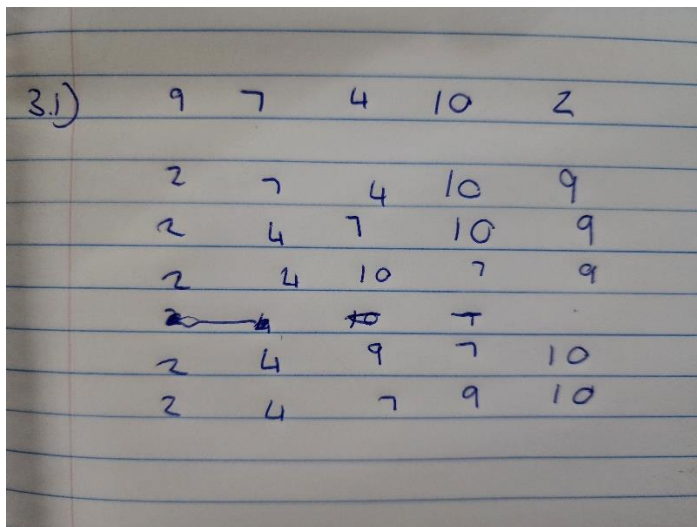 3.1) 9 7 4 10 2
2 7 4 10 9
2 4 7 10 9
2 4 10 7 9
2 4 9 7 10
2 4 7 9 10